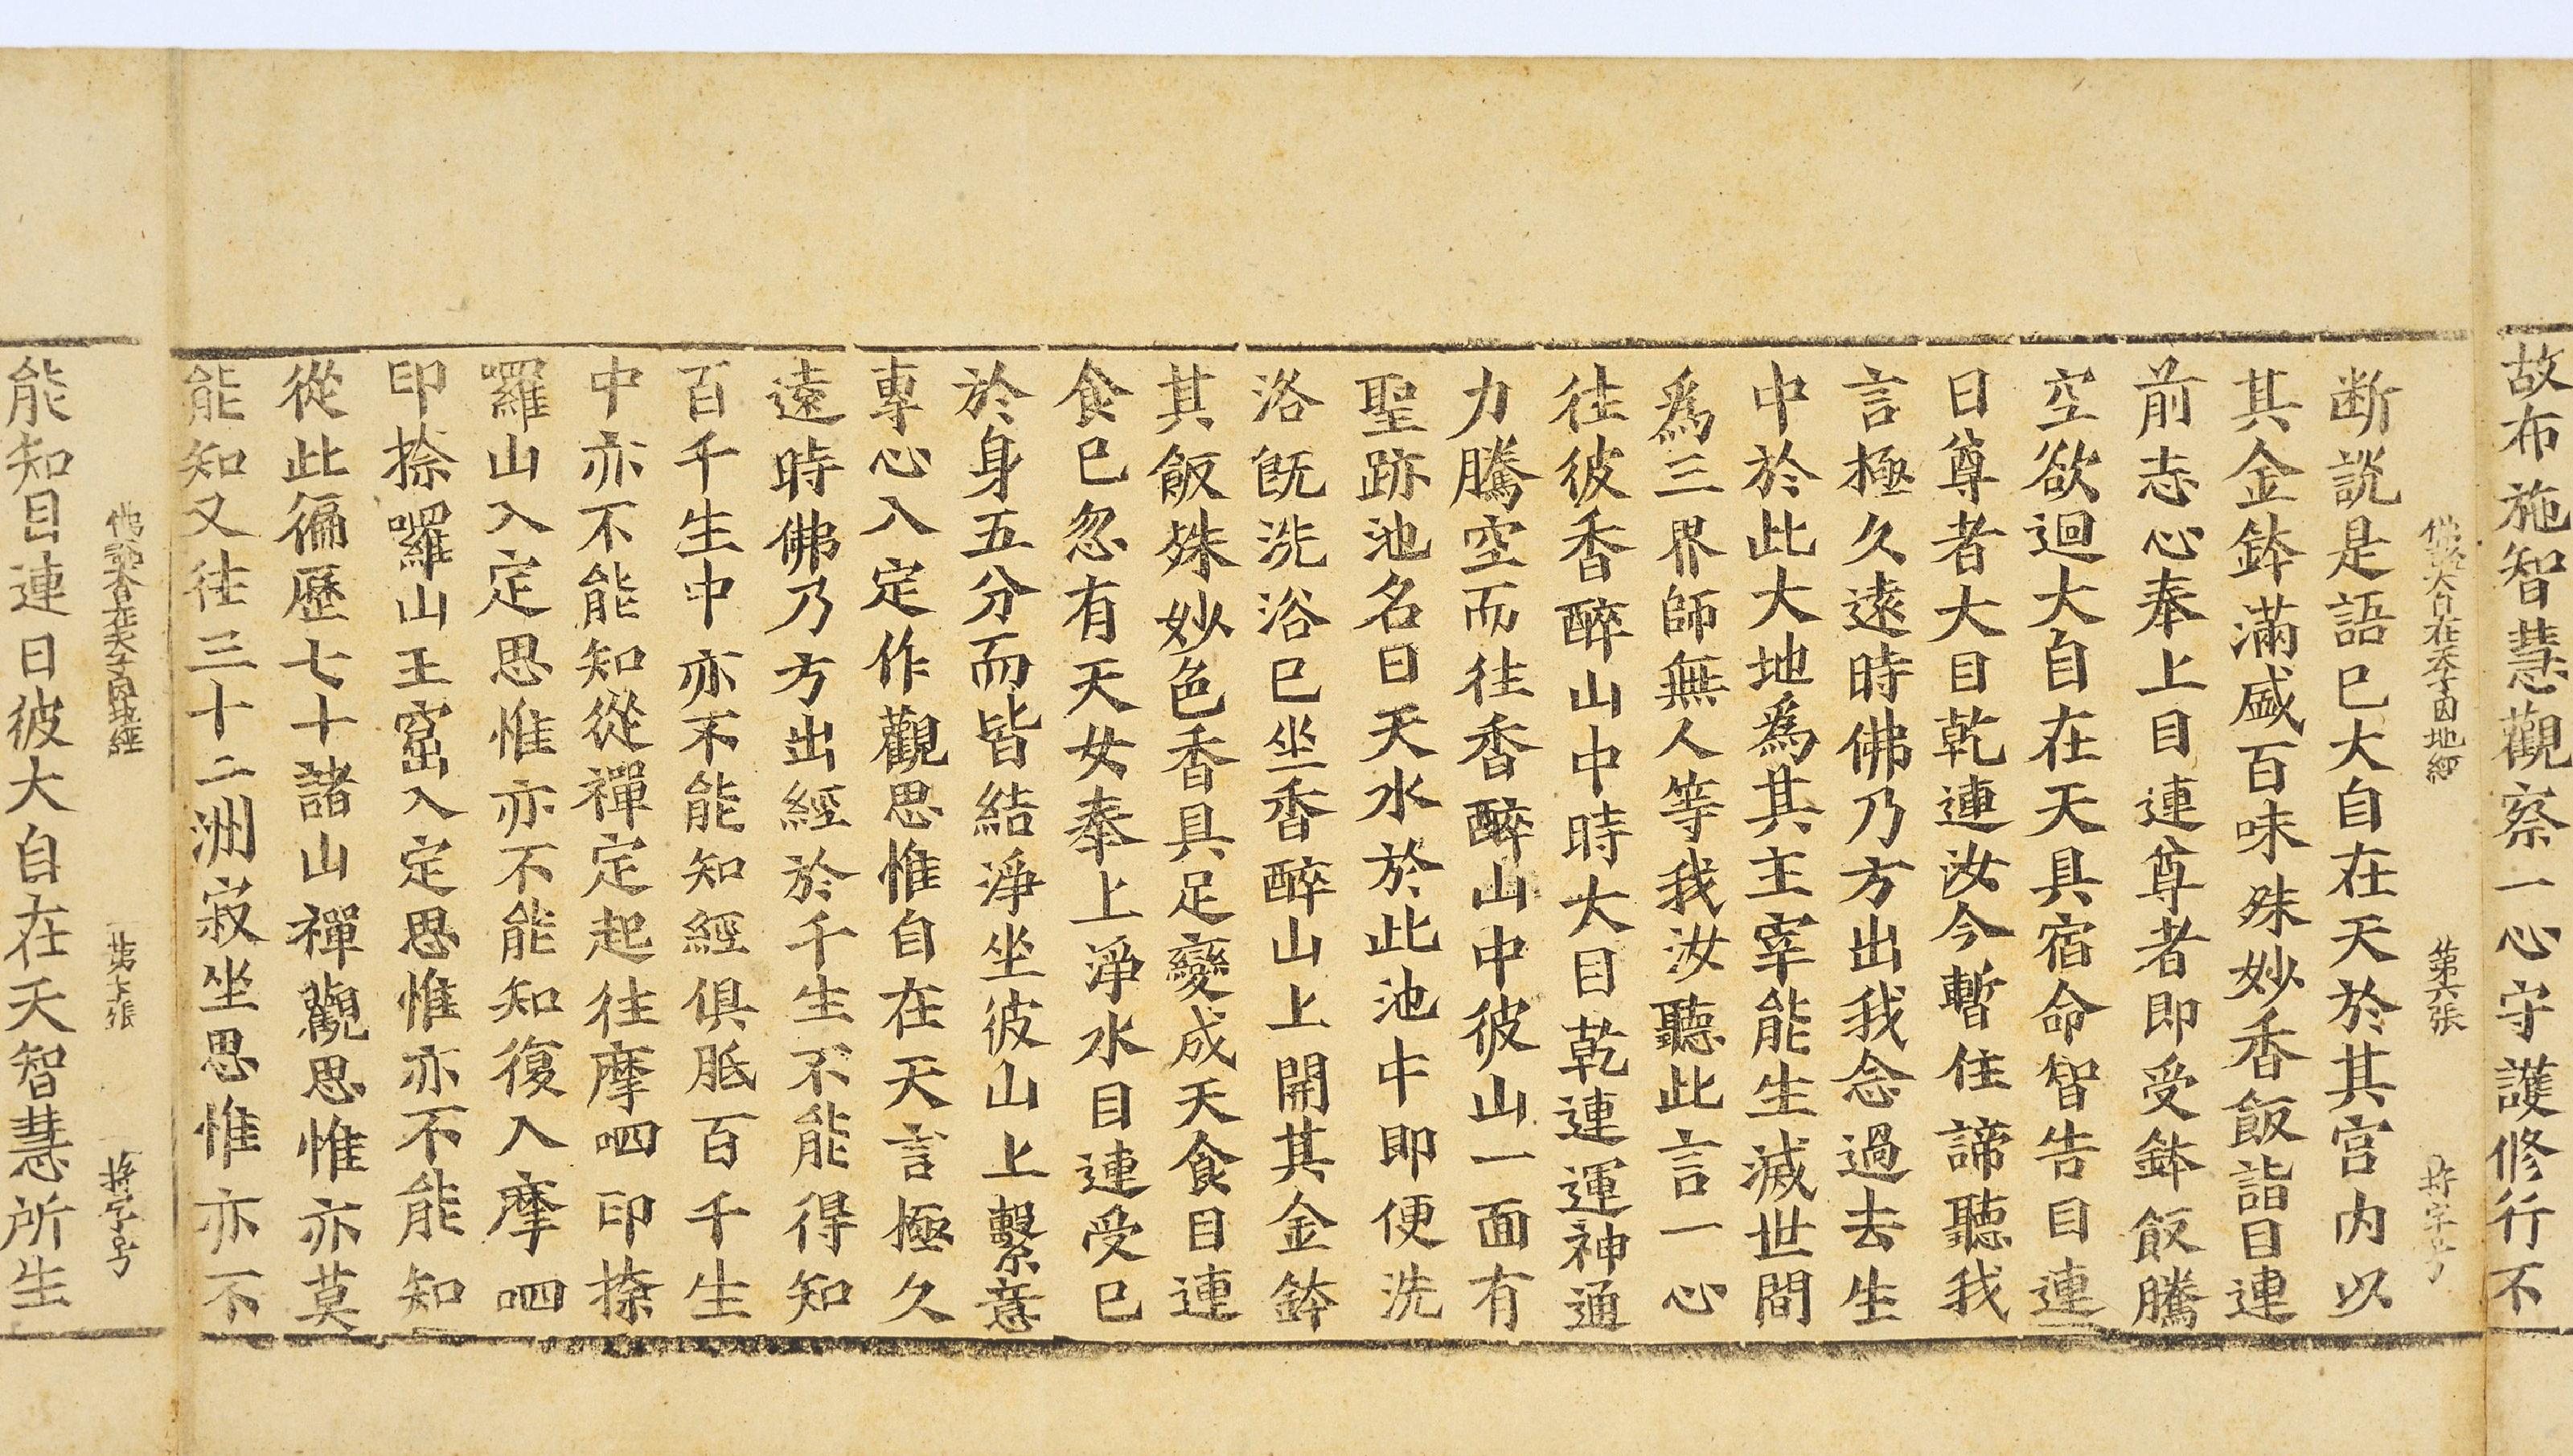 故布施智慧觀察一心守護修行不
佛說大自在天子因地經 第六張 将字号
断說是語已大自在天於其宮内以
其金鉢滿盛百味殊妙香飯詣目連
前志心奉上目連尊者即受鉢飯騰
空欲迴大自在天具宿命智告目連
曰尊者大目乾連汝今暫住諦聽我
言極久遠時佛乃方出我念過去生
中於此大地爲其主宰能生滅世間
爲三界師無人等我汝聽此言一心
往彼香醉山中時大目乾連運神通
力騰空而往香醉山中彼山一面有
聖跡池名曰天水於此池中即便洗
洛旣洗浴巳坐香醉山上開其金鉢
其飯殊妙色香具足變成天食目連
食巳忽有天女奉上淨水目連受巳
於身五分而皆結淨坐彼山上繫意
專心入定作觀思惟自在天言極久
遠時佛乃方出經於千生不能得知
百千生中亦不能知經俱胝百千生
中亦不能知從禪定起往摩呬印捺
囉山入定思惟亦不能知復入摩呬
印捺囉山王窟入定思惟亦不能知
從此徧歷七十諸山禪觀思惟亦莫
能知又往三十二洲寂坐思惟亦不
佛說大自在天子因地經 第七張 将字号
能知目連曰彼大自在天智慧所生